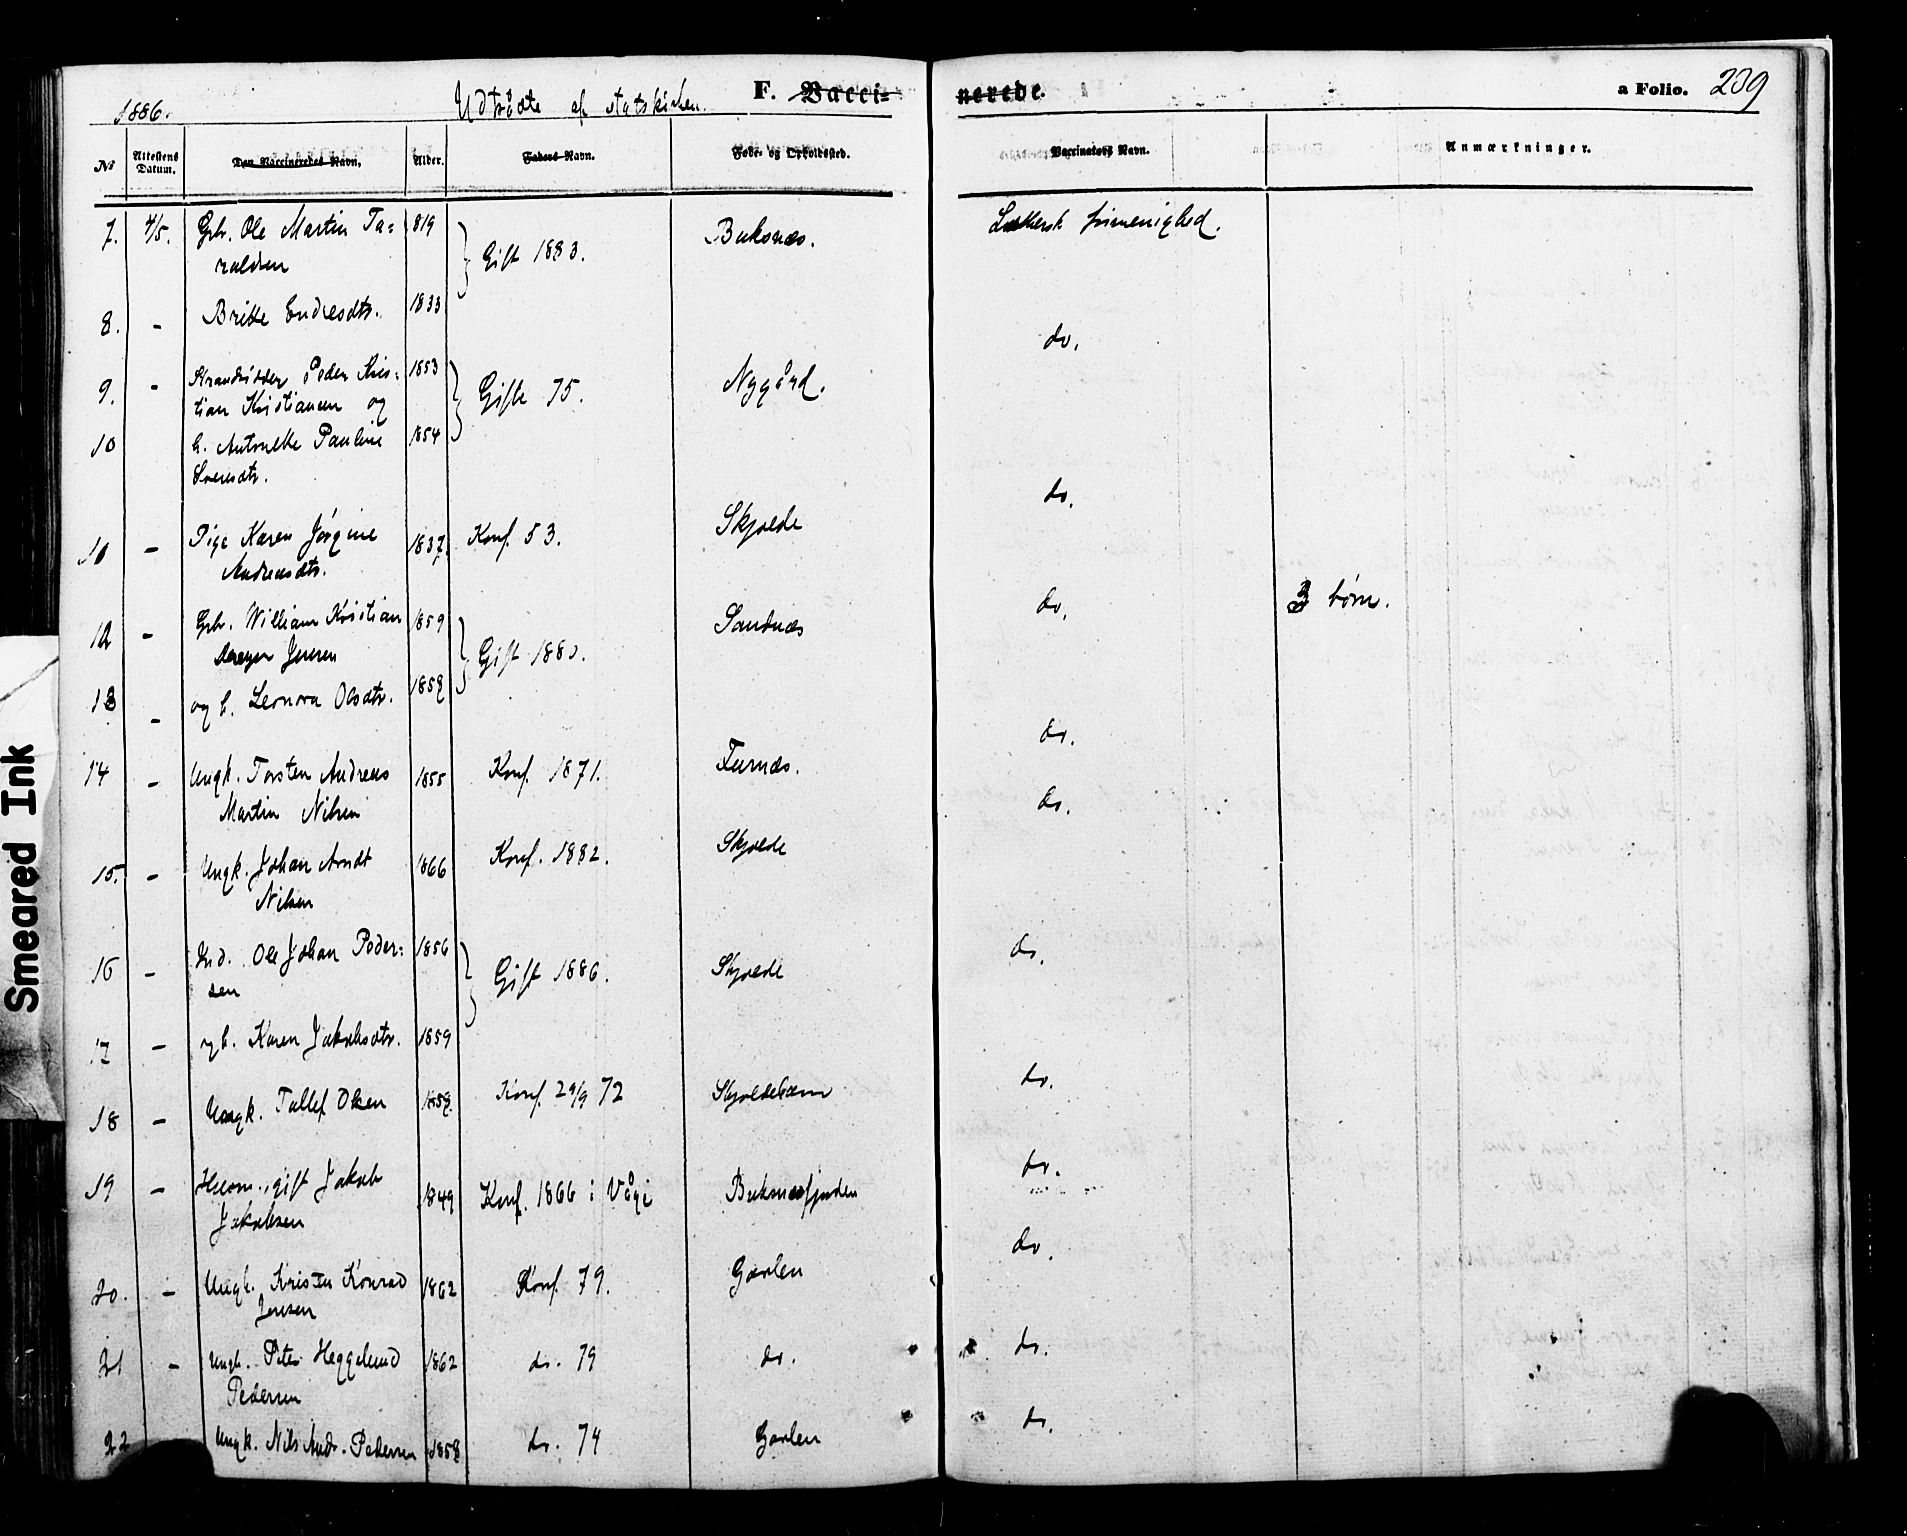 1886. Udtrådte af statskirken. F. Vacci- nerede. a Folio. 209
No Attestens Datum. Den Vaccineredes Navn. Alder. Faders Navn. Føde- og Opholdssted. Vaccinateurs Navn. Anmærkninger.
7. 4/5. Gbr. Ole Martin Ta= 1819 Gift 1883. Buksnæs. Luthersk frimenighed.
raldsen
8. - Britte Endresdtr. 1833 do.
9. - Strandsidder Peder Kris= 1853 Gifte 75. Nygård.
tian Kristiansen og
10 h. Antonette Pauline 1854
Svensdtr. do.
11 - Pige Karen Jørgine 1837. Konf. 53. Skjolde
Andreasdtr.
12 - Gbr. William Kristian 1859 Gift 1880. Sandnæs do. 3 børn.
Jensen
13 - og h. Leonora Olsdtr. 1858
do.
14 - Ungk. Torsten Andreas 1855 Konf. 1871. Furnæs.
Martin Nilsen do.
15. - Ungk. Johan Arndt 1866 Konf. 1882. Skjolde
Nilsen
16 - Ind. Ole Johan Peder= 1856 Gift 1886. Skjolde do.
sen
17 - og h. Karen Jakobsdtr. 1859
18 - Ungk. Tollef Olsen 1858. Konf. 29/9 72 Skjoldehavn do.
19 - Husm., gift Jakob 1849 Konf. 1866 i Vågø Buksnæsfjorden do.
Jakobsen
20. - Ungk. Kristen Konrad 1862 Konf. 79. Gårlen do.
Jensen
21 - Ungk. Peter Heggelund 1862 do. 79 do. do.
Pedersen
22 Ungk. Nils Andr. Pedersen 1858 do. 74 Gårlen do.
Smeared Ink